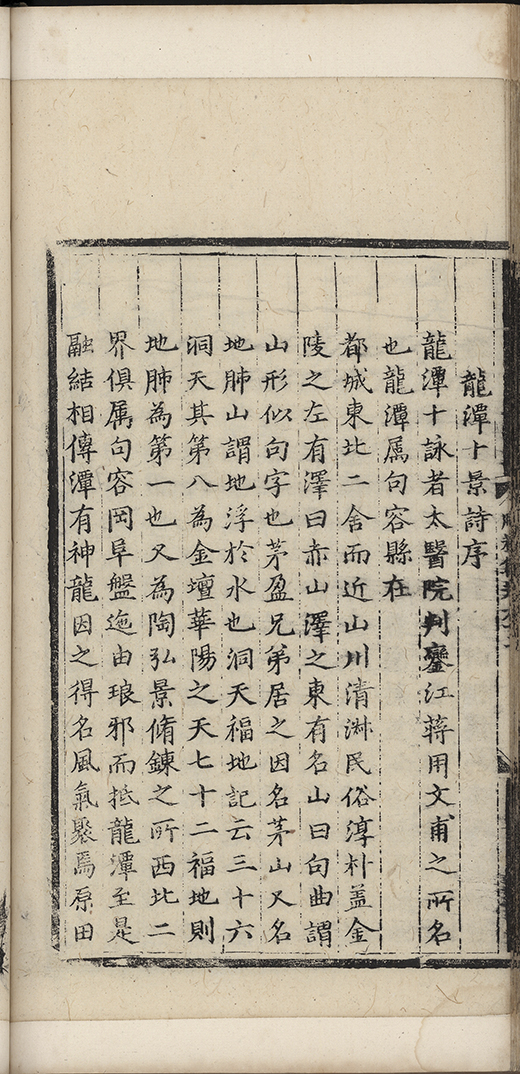 龍潭十景詩序
龍潭十詠者太醫院判鑾江蔣用文甫之所名
也龍潭属句容縣在
都城東北二舍而近山川清淋民俗淳朴盖金
陵之左有澤曰赤山澤之東有名山曰句曲謂
山形似句字也茅盈兄弟居之因名茅山又名
地肺山謂地浮於水也洞天福地記云三十六
洞天其第八為金壇華陽之天七十二福地則
地肺為第一也又為陶弘景脩鍊之所西北二
界俱属句容岡阜盤迤由琅邪而抵龍潭至是
融結相傳潭有神龍因之得名風氣聚焉原田